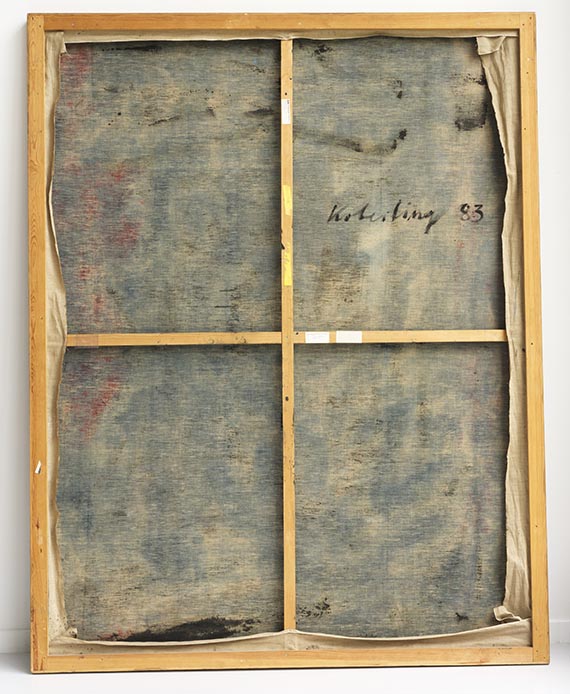 Koberling 83